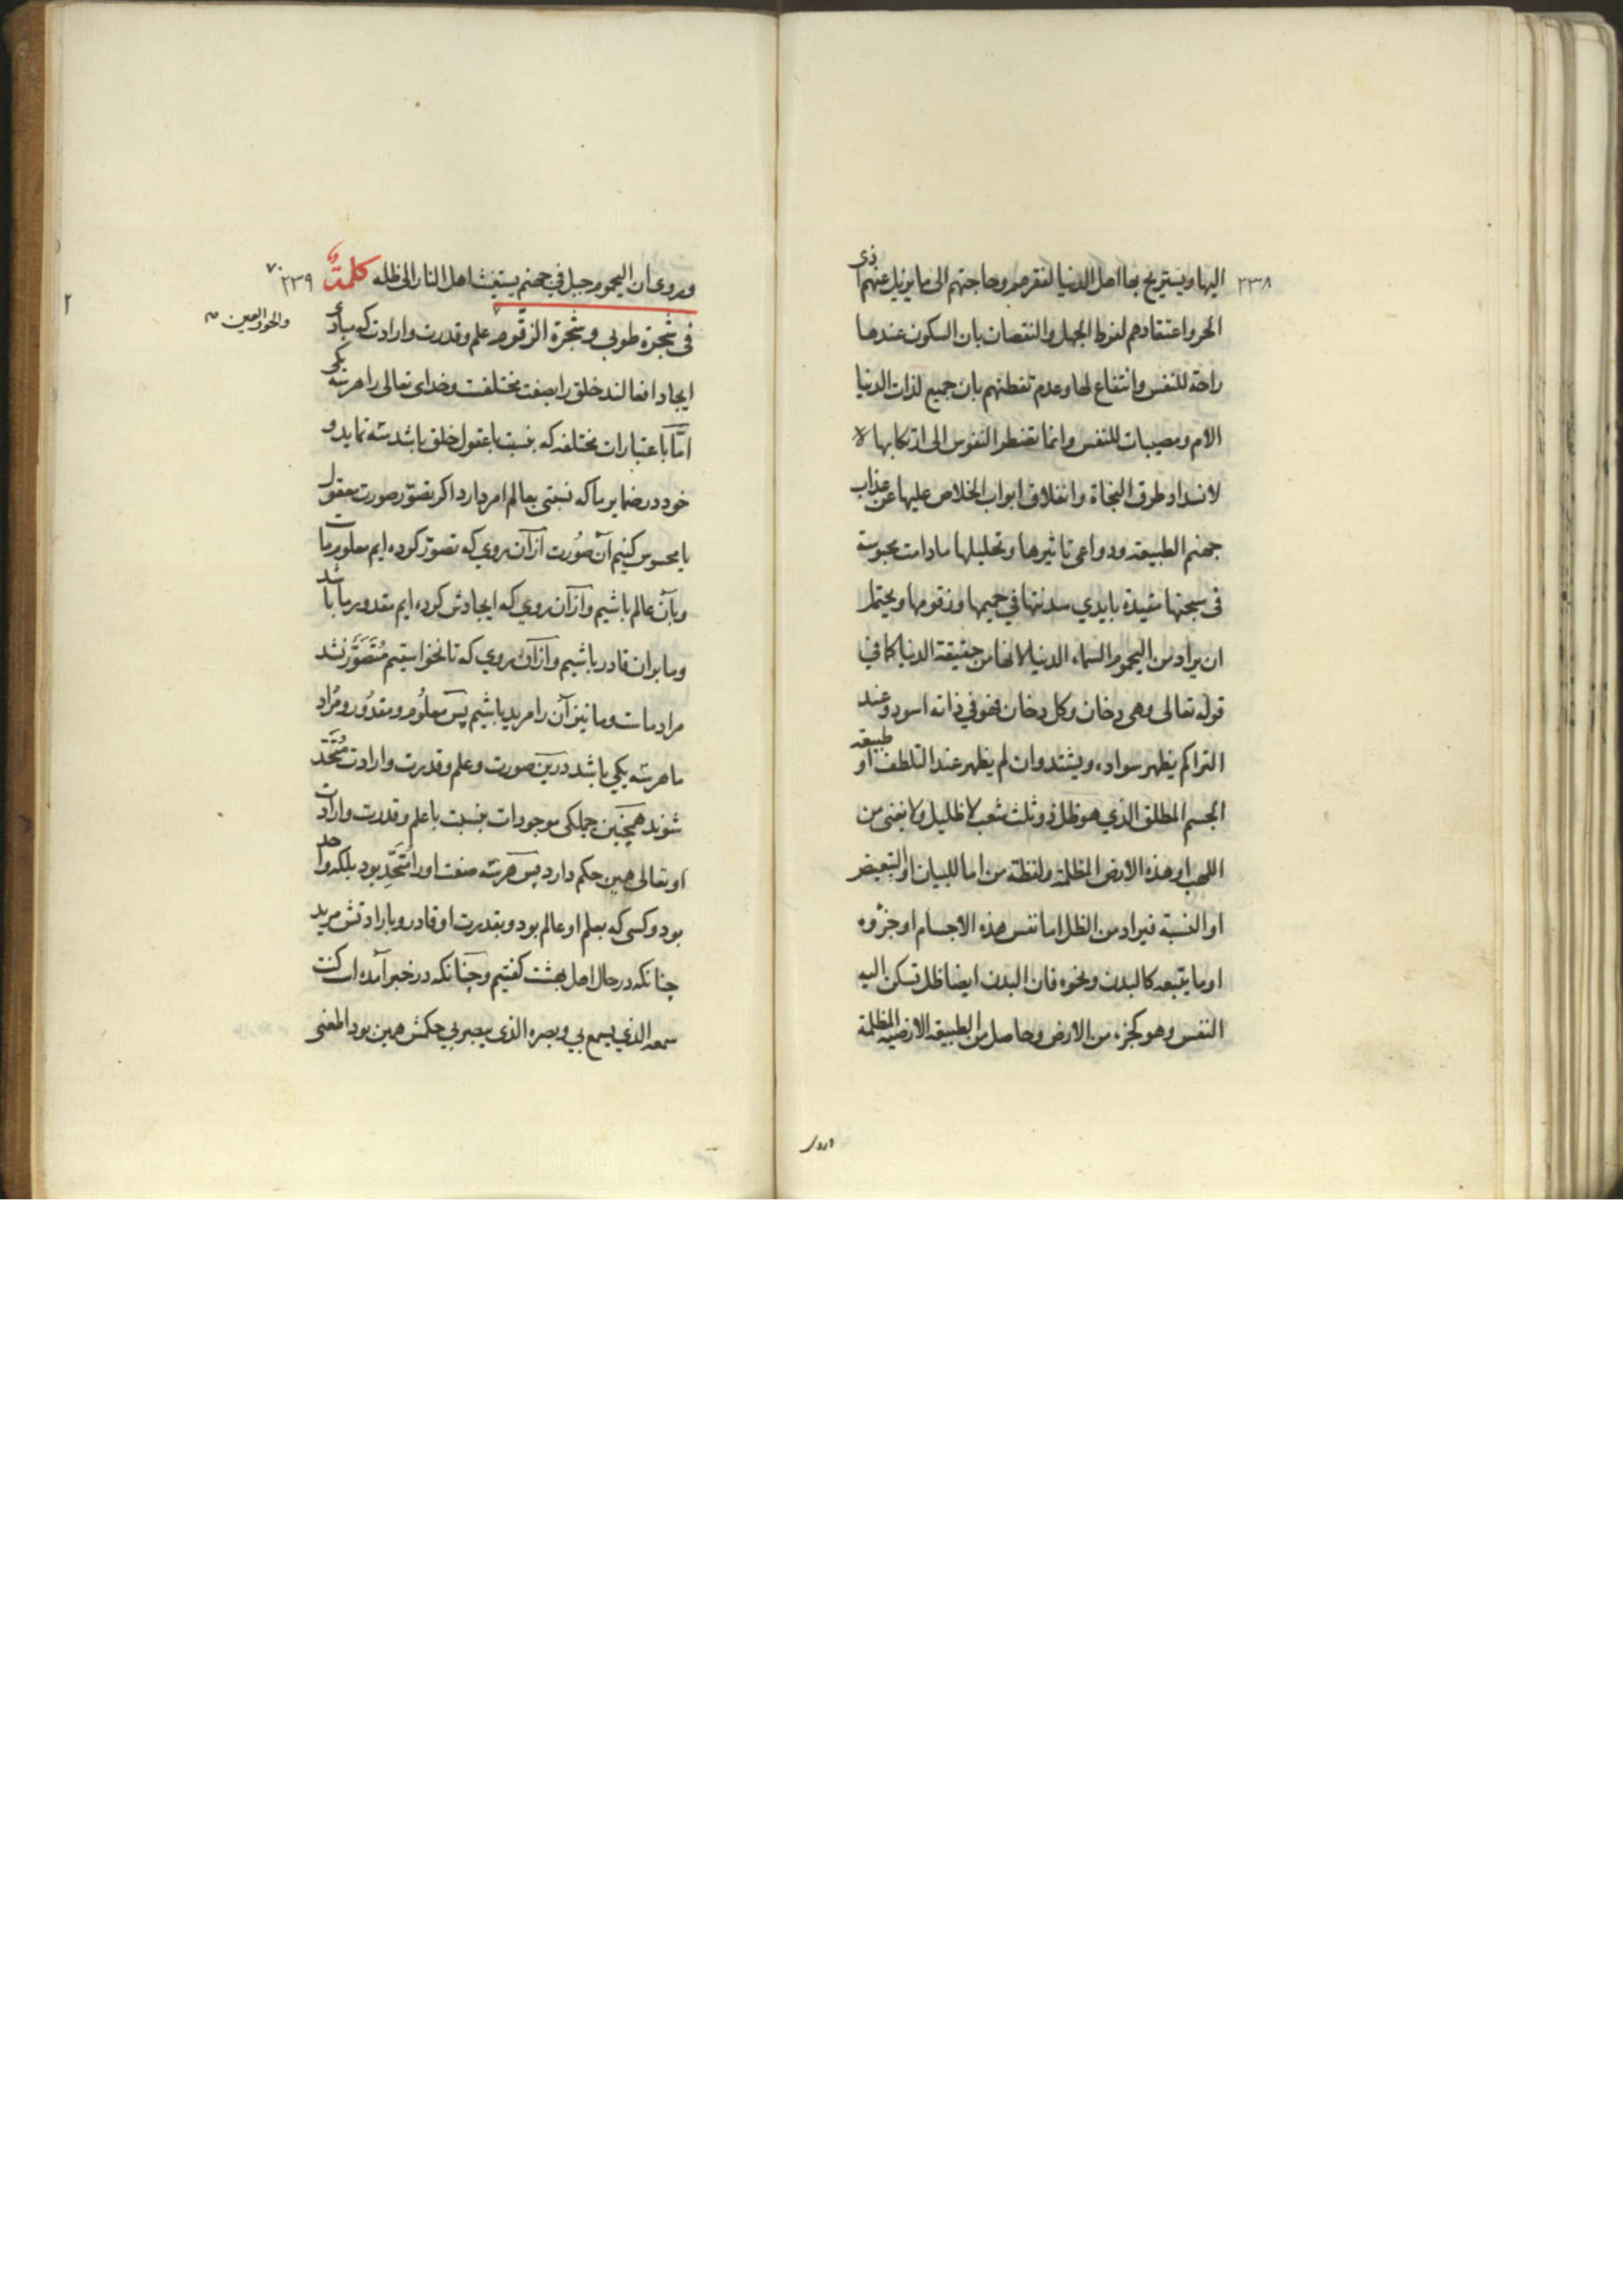 ٢٣٨
اليها ويستريح بها اهل الدنيا لفقرهم وحاجتهم الى ما يزيل عنهم اذى
الحر واعتقادهم لفرط الجهل والنقصان بان السكون عندها
راحة للنفس وانتفاع لها وعدم تفطنهم بان جميع لذات الدنيا
الام ومصيبات للنفس وانما تضطر النفوس الى ارتكابها
لانسداد طرق النجاة وانغلاق ابواب الخلاص عليها عن عذاب
جهنم الطبيعة ودواعى تاثيرها وتحليلها مادامت محبوسة
فى سجنها مقيدة بايدي سدنتها في حميمها وزقومها ويحتمل
ان يراد من اليحموم السماء الدنيا لانها من حقيقة الدنيا كما في
قوله تعالى وهى دخان وكل دخان فهو في ذاته اسود وعند
التراكم يظهر سواده ويشتد وان لم يظهر عند التلطف او طبيعة
الجسم المطلق الذي هو ظل ذو ثلث شعب لا ظليل ولا يغنى من
اللهب او هذه الارض المظلمة ولفظة من اما للبيان او التبعيض
او النسبة فيراد من الظل اما نفس هذه الاجسام او جزؤه
او ما يتبعه كالبدن ونحوه فان البدن ايضا ظل تسكن اليه
النفس وهو كجزء من الارض وحاصل من الطبيعة الارضية المظلمة
وروى
٢٣٩
وروى ان اليحموم جبل في جهنم يستغيث اهل النار الى ظله كلمة
فى شجرة طوبي وشجرة الزقوم علم وقدرت وارادت كه مبادئ
والحور العين
ايجاد افعالند خلق را بصفت مختلفست وخداى تعالى را هر سه يكى
اما باعتبارات مختلفه كه بنسبت با عقول خلق باشد سه نمايد و
خود در ضماير ما كه نسبتى بعالم امر دارد اكر تصور صورت معقول
يا محسوس كنيم آن صورت از آن روي كه تصور كرده ايم معلوم ماست
وبآن عالم باشيم واز آن روي كه ايجادش كرده ايم مقدور ما باشد
وما بران قادر باشيم واز آن روي كه تا نخواستيم متصور نشد
مراد ماست وما نيز آن را مريد باشيم پس معلوم ومقدور ومراد
ما هر سه يكي باشد درين صورت وعلم وقدرت وارادت متحد
شوند همچنين جملكى موجودات بنسبت با علم وقدرت وارادت
او تعالى همين حكم دارد پس هر سه صفت او را متحد بود بلكه واحد
بود وكسى كه بعلم او عالم بود وبقدرت او قادر وبارادتش مريد
چنانكه در حال اهل بهشت كفتيم وچنانكه در خبر آمده است كنت
سمعه الذي يسمع بي وبصره الذى يبصر بي حكمش همين بود المعنى
٢